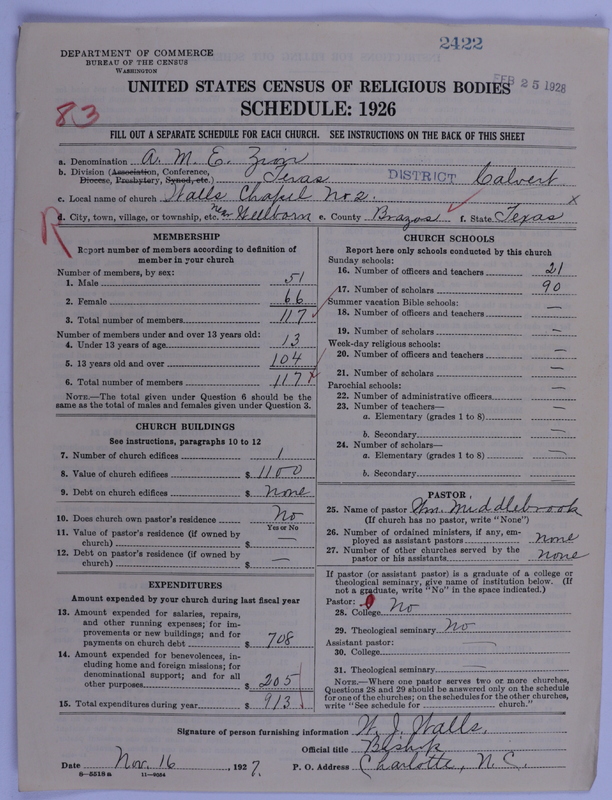 2422
DEPARTMENT OF COMMERCE
BUREAU OF THE CENSUS
WASHINGTON
FEB 25 1928
UNITED STATES CENSUS OF RELIGIOUS BODIES
SCHEDULE: 1926
83
FILL OUT A SEPARATE SCHEDULE FOR EACH CHURCH. SEE INSTRUCTIONS ON THE BACK OF THIS SHEET
a. Denomination A. M. E. Zion
b. Division (Association, Conference, Diocese, Presbytery, Synod, etc.) Texas DISTRICT Calvert
c. Local name of church Walls Chapel No 2. x
d. City, town, village, or township, etc. near Wellborn e. County Brazos f. State Texas
R
MEMBERSHIP
Report number of members according to definition of
member in your church
Number of members, by sex:
1. Male 51
2. Female 66
3. Total number of members 117
Number of members under and over 13 years old:
4. Under 13 years of age 13
5. 13 years old and over 104
6. Total number of members 117
NOTE.—The total given under Question 6 should be
same as the total of males and females given under Question 3.
CHURCH BUILDINGS
See instructions, paragraphs 10 to 12
7. Number of church edifices 1
8. Value of church edifices $ 1100
9. Debt on church edifices $ none
10. Does church own pastor's residence No
Yes or No
11. Value of pastor's residence (if owned by
church) $ —
12. Debt on pastor's residence (if owned by
church) $ —
EXPENDITURES
Amount expended by your church during last fiscal year
13. Amount expended for salaries, repairs,
and other running expenses; for im-
provements or new buildings; and for
payments on church debt $ 708
14. Amount expended for benevolences, in-
cluding home and foreign missions; for
denominational support; and for all
other purposes $ 205
15. Total expenditures during year $ 913
CHURCH SCHOOLS
Report here only schools conducted by this church
Sunday schools:
16. Number of officers and teachers 21
17. Number of scholars 90
Summer vacation Bible schools:
18. Number of officers and teachers —
19. Number of scholars —
Week-day religious schools:
20. Number of officers and teachers —
21. Number of scholars —
Parochial schools:
22. Number of administrative officers —
23. Number of teachers—
a. Elementary (grades 1 to 8) —
b. Secondary —
24. Number of scholars—
a. Elementary (grades 1 to 8) —
b. Secondary —
PASTOR
25. Name of pastor Wm. Middlebrook
(If church has no pastor, write "None")
26. Number of ordained ministers, if any, em-
ployed as assistant pastors none
27. Number of other churches served by the
pastor or his assistants none
If pastor (or assistant pastor) is a graduate of a college or
theological seminary, give name of institution below. (If
not a graduate, write "No" in the space indicated.)
Pastor:
28. College No
29. Theological seminary No
Assistant pastor:
30. College —
31. Theological seminary —
NOTE.—Where one pastor serves two or more churches,
Questions 28 and 29 should be answered only on the schedule
for one of the churches; on the schedules for the other churches,
write "See schedule for church."
Signature of person furnishing information W. J. Walls.
Official title Bishop
Date Nov. 16, 1927. P. O. Address Charlotte, N. C.
8—5518a 11—9064